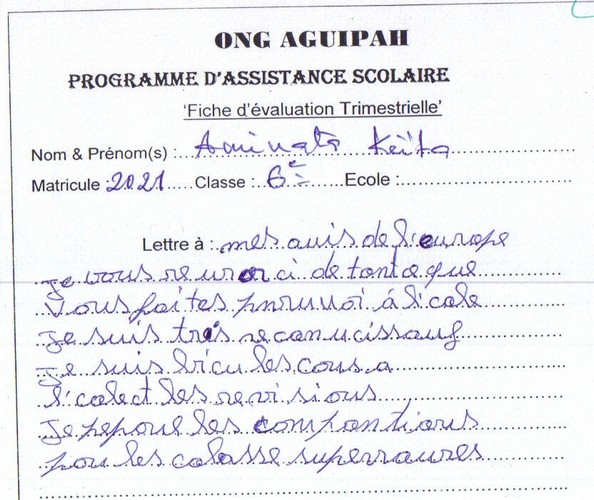 ONG AGUIPAH
PROGRAMME D'ASSISTANCE SCOLAIRE
'Fiche d'évaluation Trimestrielle'
Nom & Prénom(s) : Aminata Keïta
Matricule : 2021 Classe : 6e Ecole :
Lettre à : mes amis de l'europe
je vous remerci de tont ce que
vous faites pour moi á l'cole
je suis très recanucissauf
je suis bien les cous a
l'colect les revisions
je pepoue les compontions
pou les calasse superraures